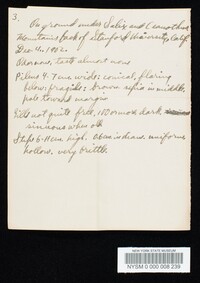 3.
On ground under Salix and Ceanothus
Mountains back of Stanford University, Calif.
Dec 4. 1902.
Odorous, taste almost none
Pileus 4-7 cm wide; conical, flaring
below; fragile; brown sepia in middle,
pale toward margin
Gills not quite free,
sinuous when old
Stipe 6-11 cm high, cm in diam, uniform,
hollow, very brittle
NEW YORK STATE MUSEUM
NYSM 0 000 008 239